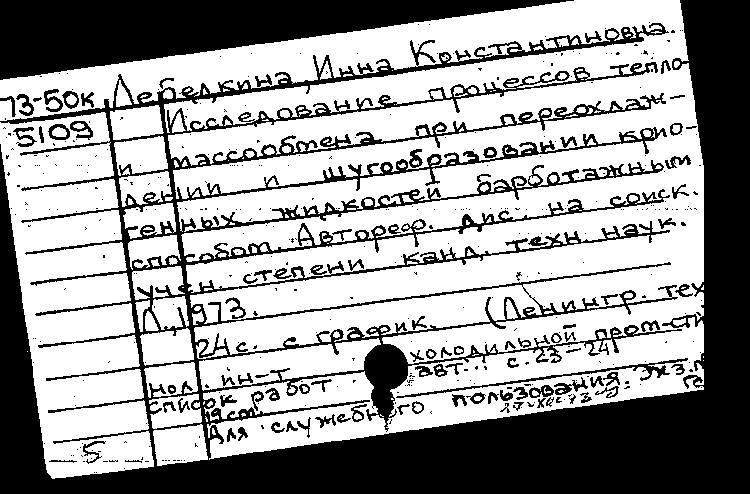 73-50к Лебедкина, Инна Константиновна.
5109 Исследование процессов тепло-
и массообмена при переохлаж-
дении и шугообразовании крио-
генных жидкостей барботажным
способом. Автореф. дис. на соиск.
учен. степени канд. техн. наук.
Л., 1973.
24 с. с график. (Ленингр. тех
нол. ин-т холодильной пром-сти
список работ авт.: с. 23-24
19 см.
Для служебного пользования. Экз.
5